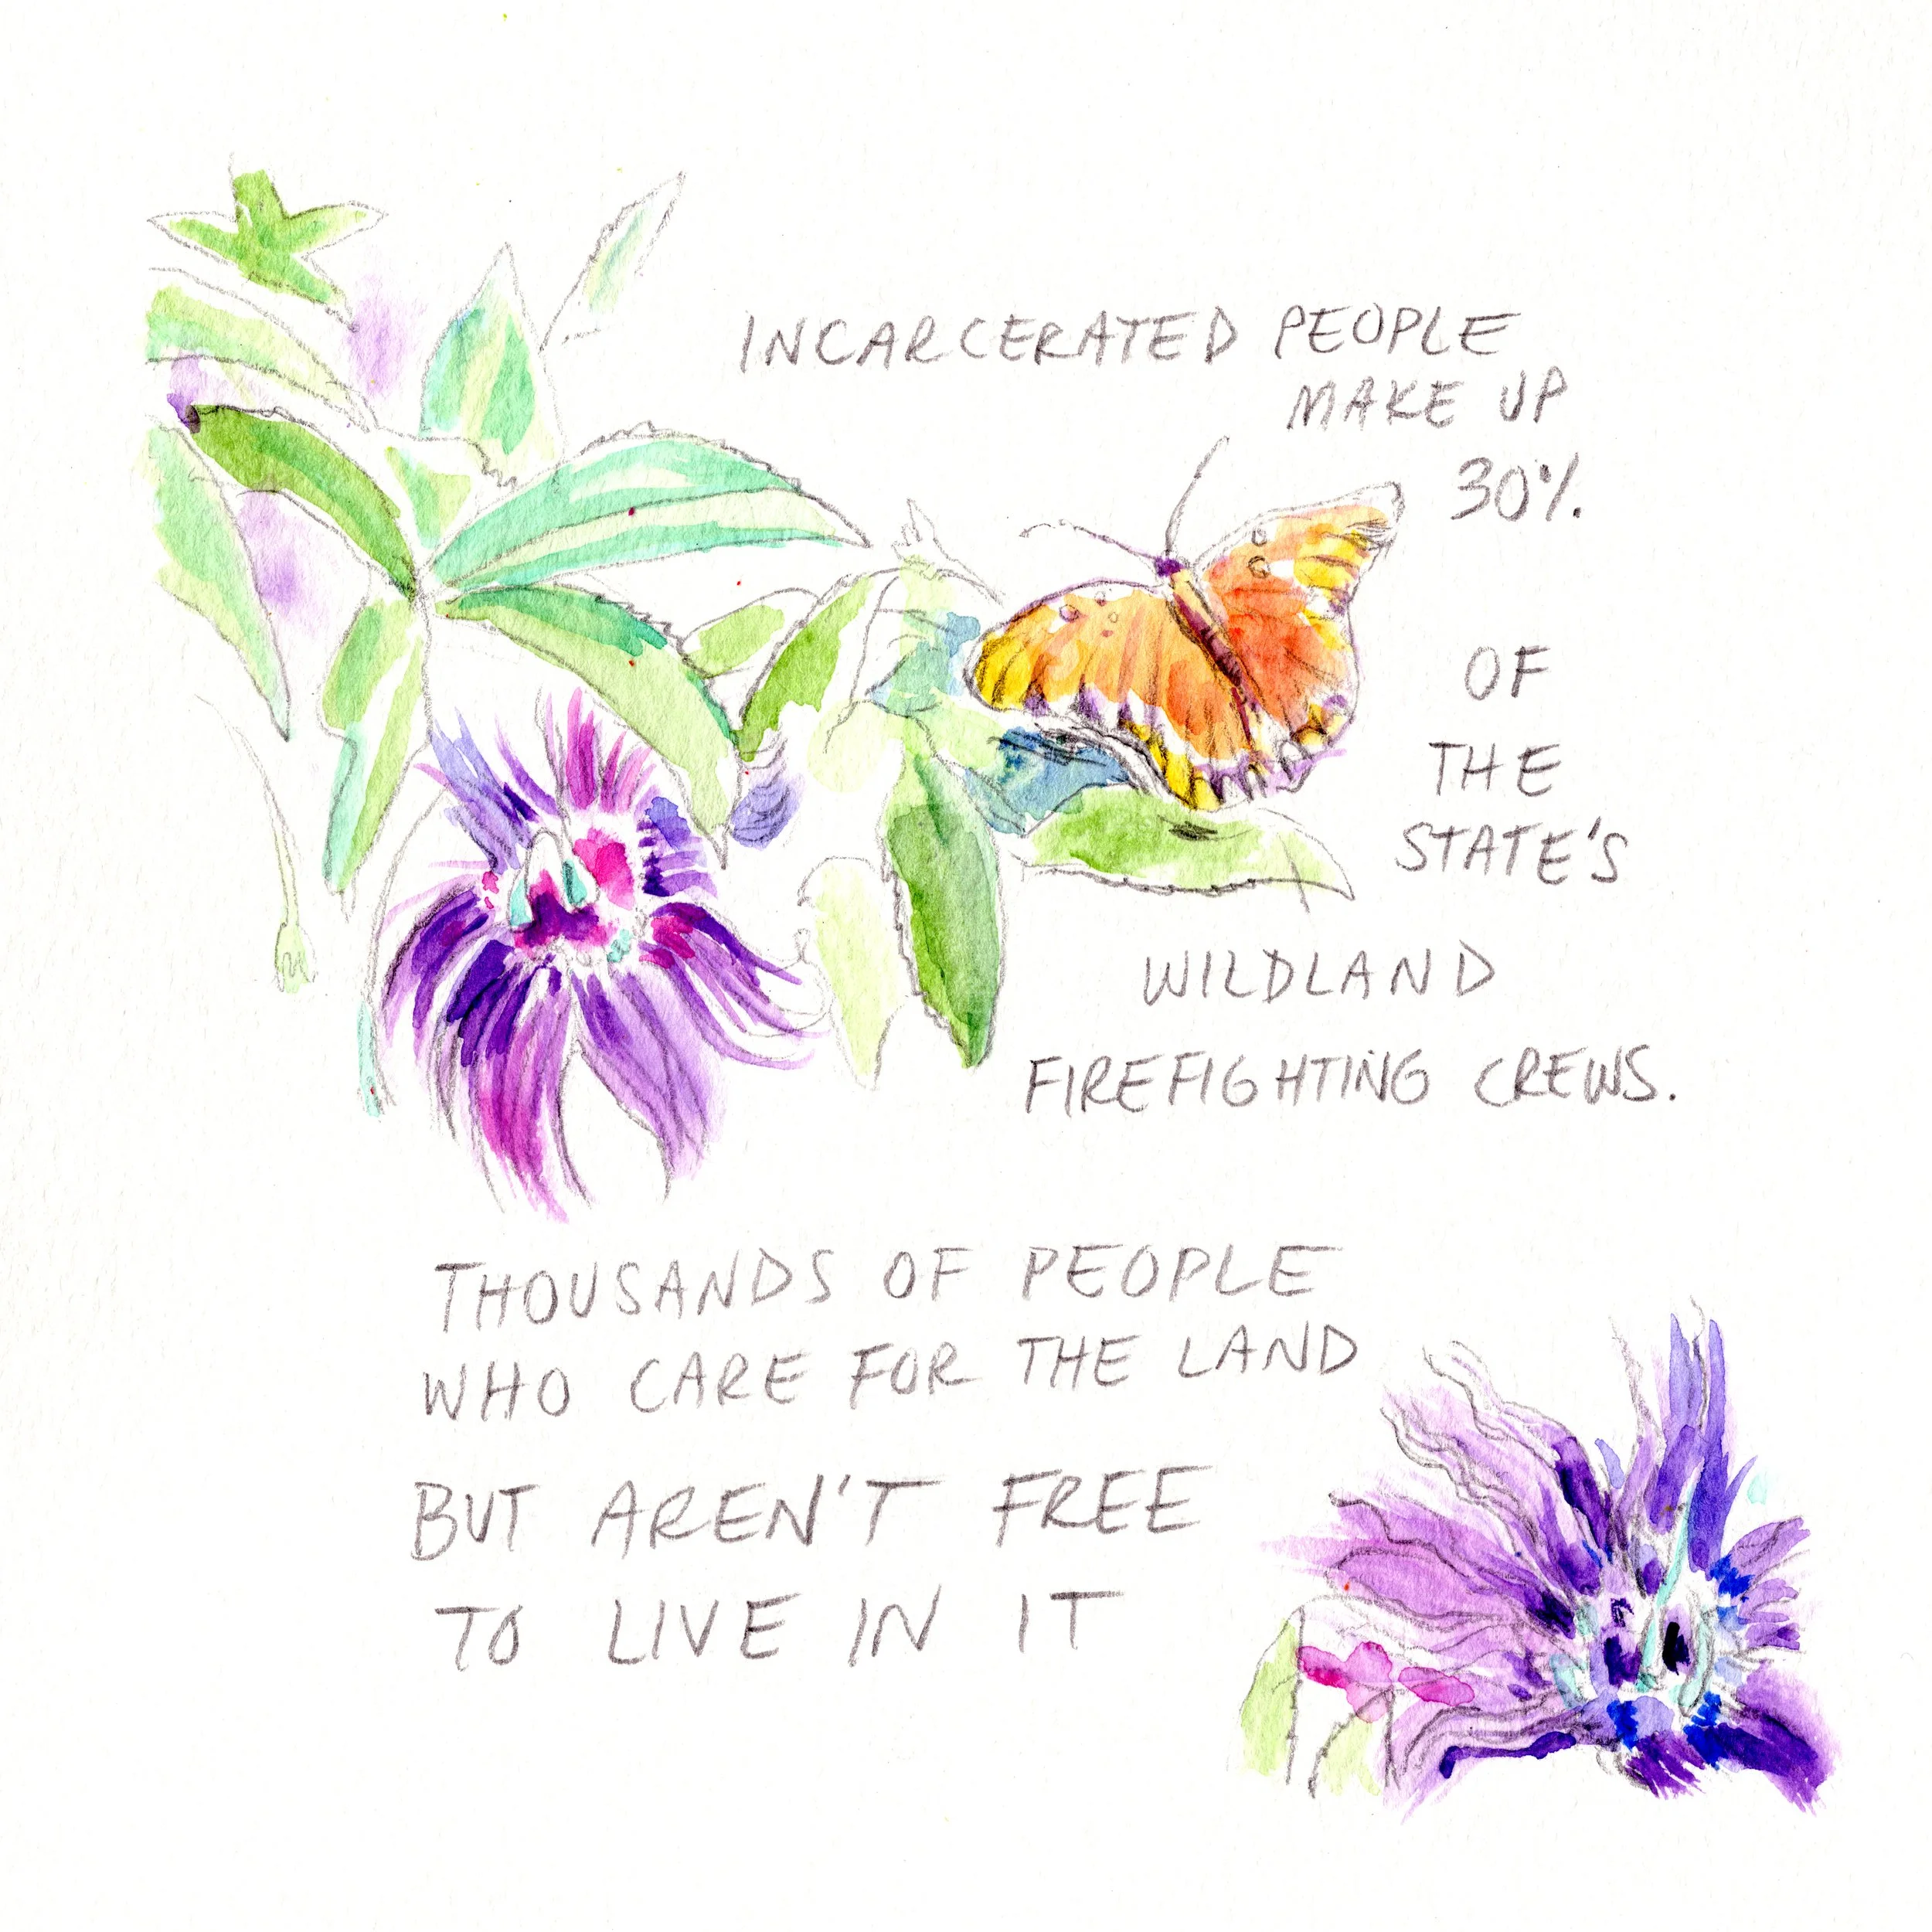 INCARCERATED PEOPLE
MAKE UP
30%
OF
THE
STATE'S
WILDLAND
FIREFIGHTING CREWS.
THOUSANDS OF PEOPLE
WHO CARE FOR THE LAND
BUT AREN'T FREE
TO LIVE IN IT